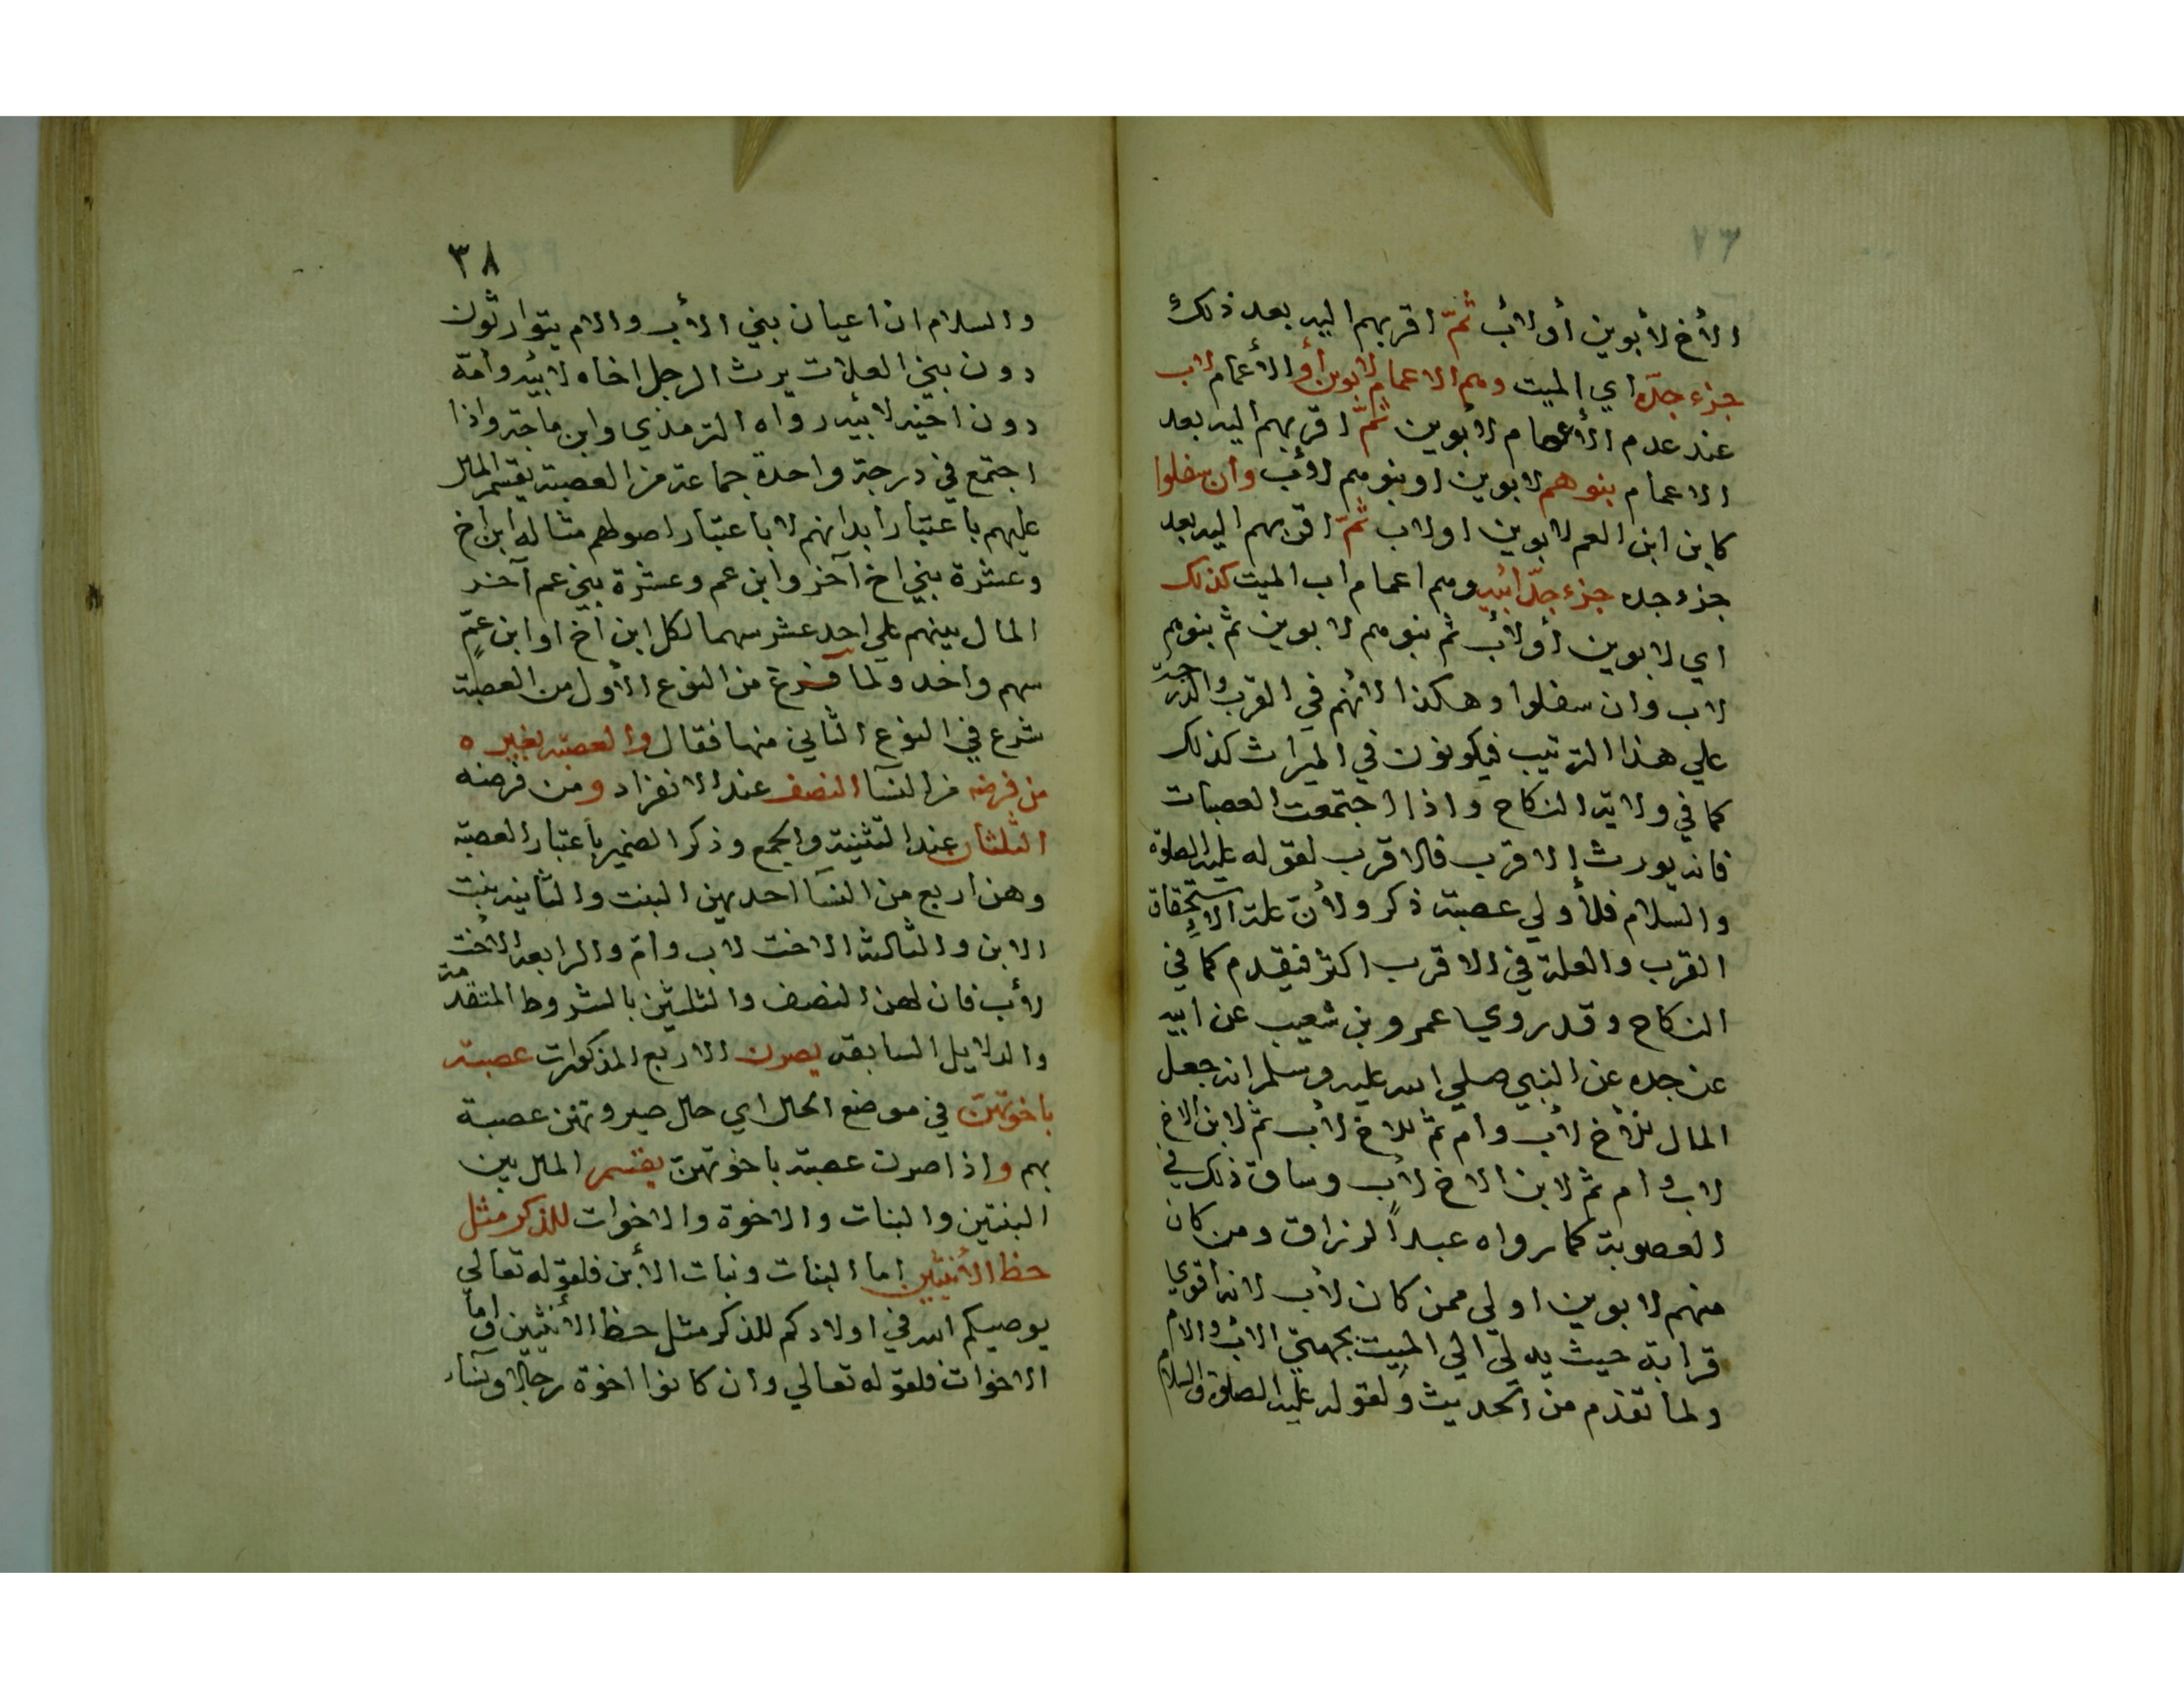 ٧٣
الأخ لأبوين أو لأب ثمّ اقربهم اليه بعد ذلك
جزء جدّه اي الميت وهم الاعمام لابوين أو الأعمام لاب
عند عدم الأعمام لأبوين ثمّ اقربهم اليه بعد
الاعمام بنوهم لابوين او بنوهم لأب وان سفلوا
كابن ابن العم لابوين او لاب ثمّ اقربهم اليه بعد
جزء جده جزء جدّ ابيه وهم اعمام اب الميت كذلك
اي لابوين أو لأب ثم بنوهم لابوين ثم بنوهم
لاب وان سفلوا وهكذا لانهم في القرب والدرجة
علي هذا الترتيب فيكونون في الميراث كذلك
كما في ولاية النكاح واذا اجتمعت العصبات
فانه يورث الاقرب فالاقرب لقوله عليه الصلوة
والسلام فلأولي عصبة ذكر ولأن علة الاستحقاق
القرب والعلة في الاقرب اكثر فيقدم كما في
النكاح وقد روي عمرو بن شعيب عن ابيه
عن جده عن النبي صلي الله عليه وسلم انه جعل
المال للأخ لأب وام ثم للاخ لأب ثم لابن الاخ
لاب وام ثم لابن الاخ لأب وساق ذلك في
العصوبة كما رواه عبد الرزاق ومن كان
منهم لابوين اولي ممن كان لأب لانه اقوي
قرابة حيث يدلي الي الميت بجهتي الاب والام
ولما تقدم من الحديث ولقوله عليه الصلوة والسلام
٣٨
والسلام ان اعيان بني الأب والام يتوارثون
دون بني العلات يرث الرجل اخاه لابيه وامّه
دون اخيه لابيه رواه الترمذي وابن ماجة واذا
اجتمع في درجة واحدة جماعة من العصبة يقسم المال
عليهم باعتبار ابدانهم لا باعتبار اصولهم مثاله ابن اخ
وعشرة بني اخ آخر وابن عم وعشرة بني عم آخر
المال بينهم علي احد عشر سهما لكل ابن اخ او ابن عمّ
سهم واحد ولما فرغ من النوع الأول من العصبة
شرع في النوع الثاني منها فقال والعصبة بغيره
من فرضه من النسآ النصف عند الانفراد ومن فرضه
الثلثان عند التثنية والجمع وذكر الضمير باعتبار العصبة
وهن اربع من النسآ احديهن البنت والثانية بنت
الابن والثالثة الاخت لاب وام والرابعة الاخت
لأب فان لهن النصف والثلثين بالشروط المتقدمة
والدلايل السابقة يصرن الاربع المذكورات عصبة
باخوتهن في موضع الحال اي حال صيروتهن عصبة
بهم واذا صرن عصبة باخوتهن يقسم المال بين
البنتين والبنات والاخوة والاخوات للذكر مثل
حظ الأنثيين اما البنات وبنات الأبن فلقوله تعالي
يوصيكم الله في اولادكم للذكر مثل حظ الأنثيين واما
الاخوات فلقوله تعالي وان كانوا اخوة رجالا ونسآء